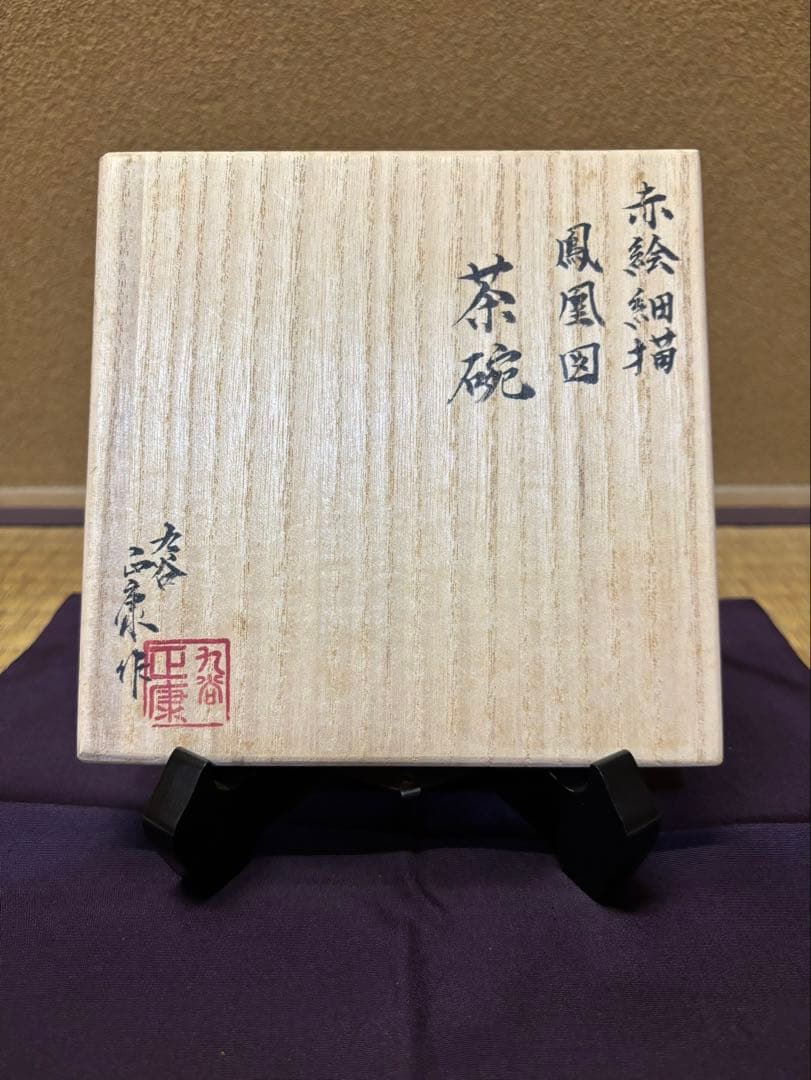 赤絵細描
鳳凰図
茶碗
九谷
正康作
九谷
正康